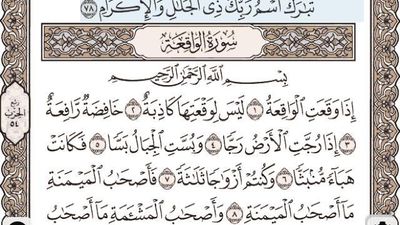 تَبَٰرَكَ ٱسْمُ رَبِّكَ ذِى ٱلْجَلَٰلِ وَٱلْإِكْرَامِ ٧٨
سُورَةُ الْوَاقِعَةِ
بِسْمِ ٱللَّهِ ٱلرَّحْمَٰنِ ٱلرَّحِيمِ
إِذَا وَقَعَتِ ٱلْوَاقِعَةُ ١ لَيْسَ لِوَقْعَتِهَا كَاذِبَةٌ ٢ خَافِضَةٌ رَّافِعَةٌ
٣ إِذَا رُجَّتِ ٱلْأَرْضُ رَجًّا ٤ وَبُسَّتِ ٱلْجِبَالُ بَسًّا ٥ فَكَانَتْ
هَبَآءً مُّنۢبَثًّا ٦ وَكُنتُمْ أَزْوَٰجًا ثَلَٰثَةً ٧ فَأَصْحَٰبُ ٱلْمَيْمَنَةِ
مَآ أَصْحَٰبُ ٱلْمَيْمَنَةِ ٨ وَأَصْحَٰبُ ٱلْمَشْـَٔمَةِ مَآ أَصْحَٰبُ
ربع
الحزب
٥٤